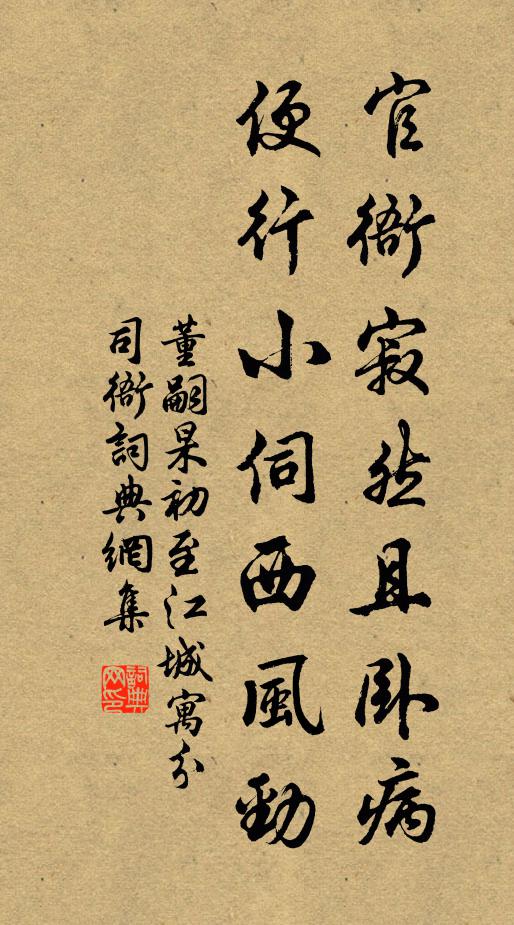 官衙寂然且卧病
便行小伺西風勁
董嗣杲初至江城寓分
司衙詞典網集
詞典
網印